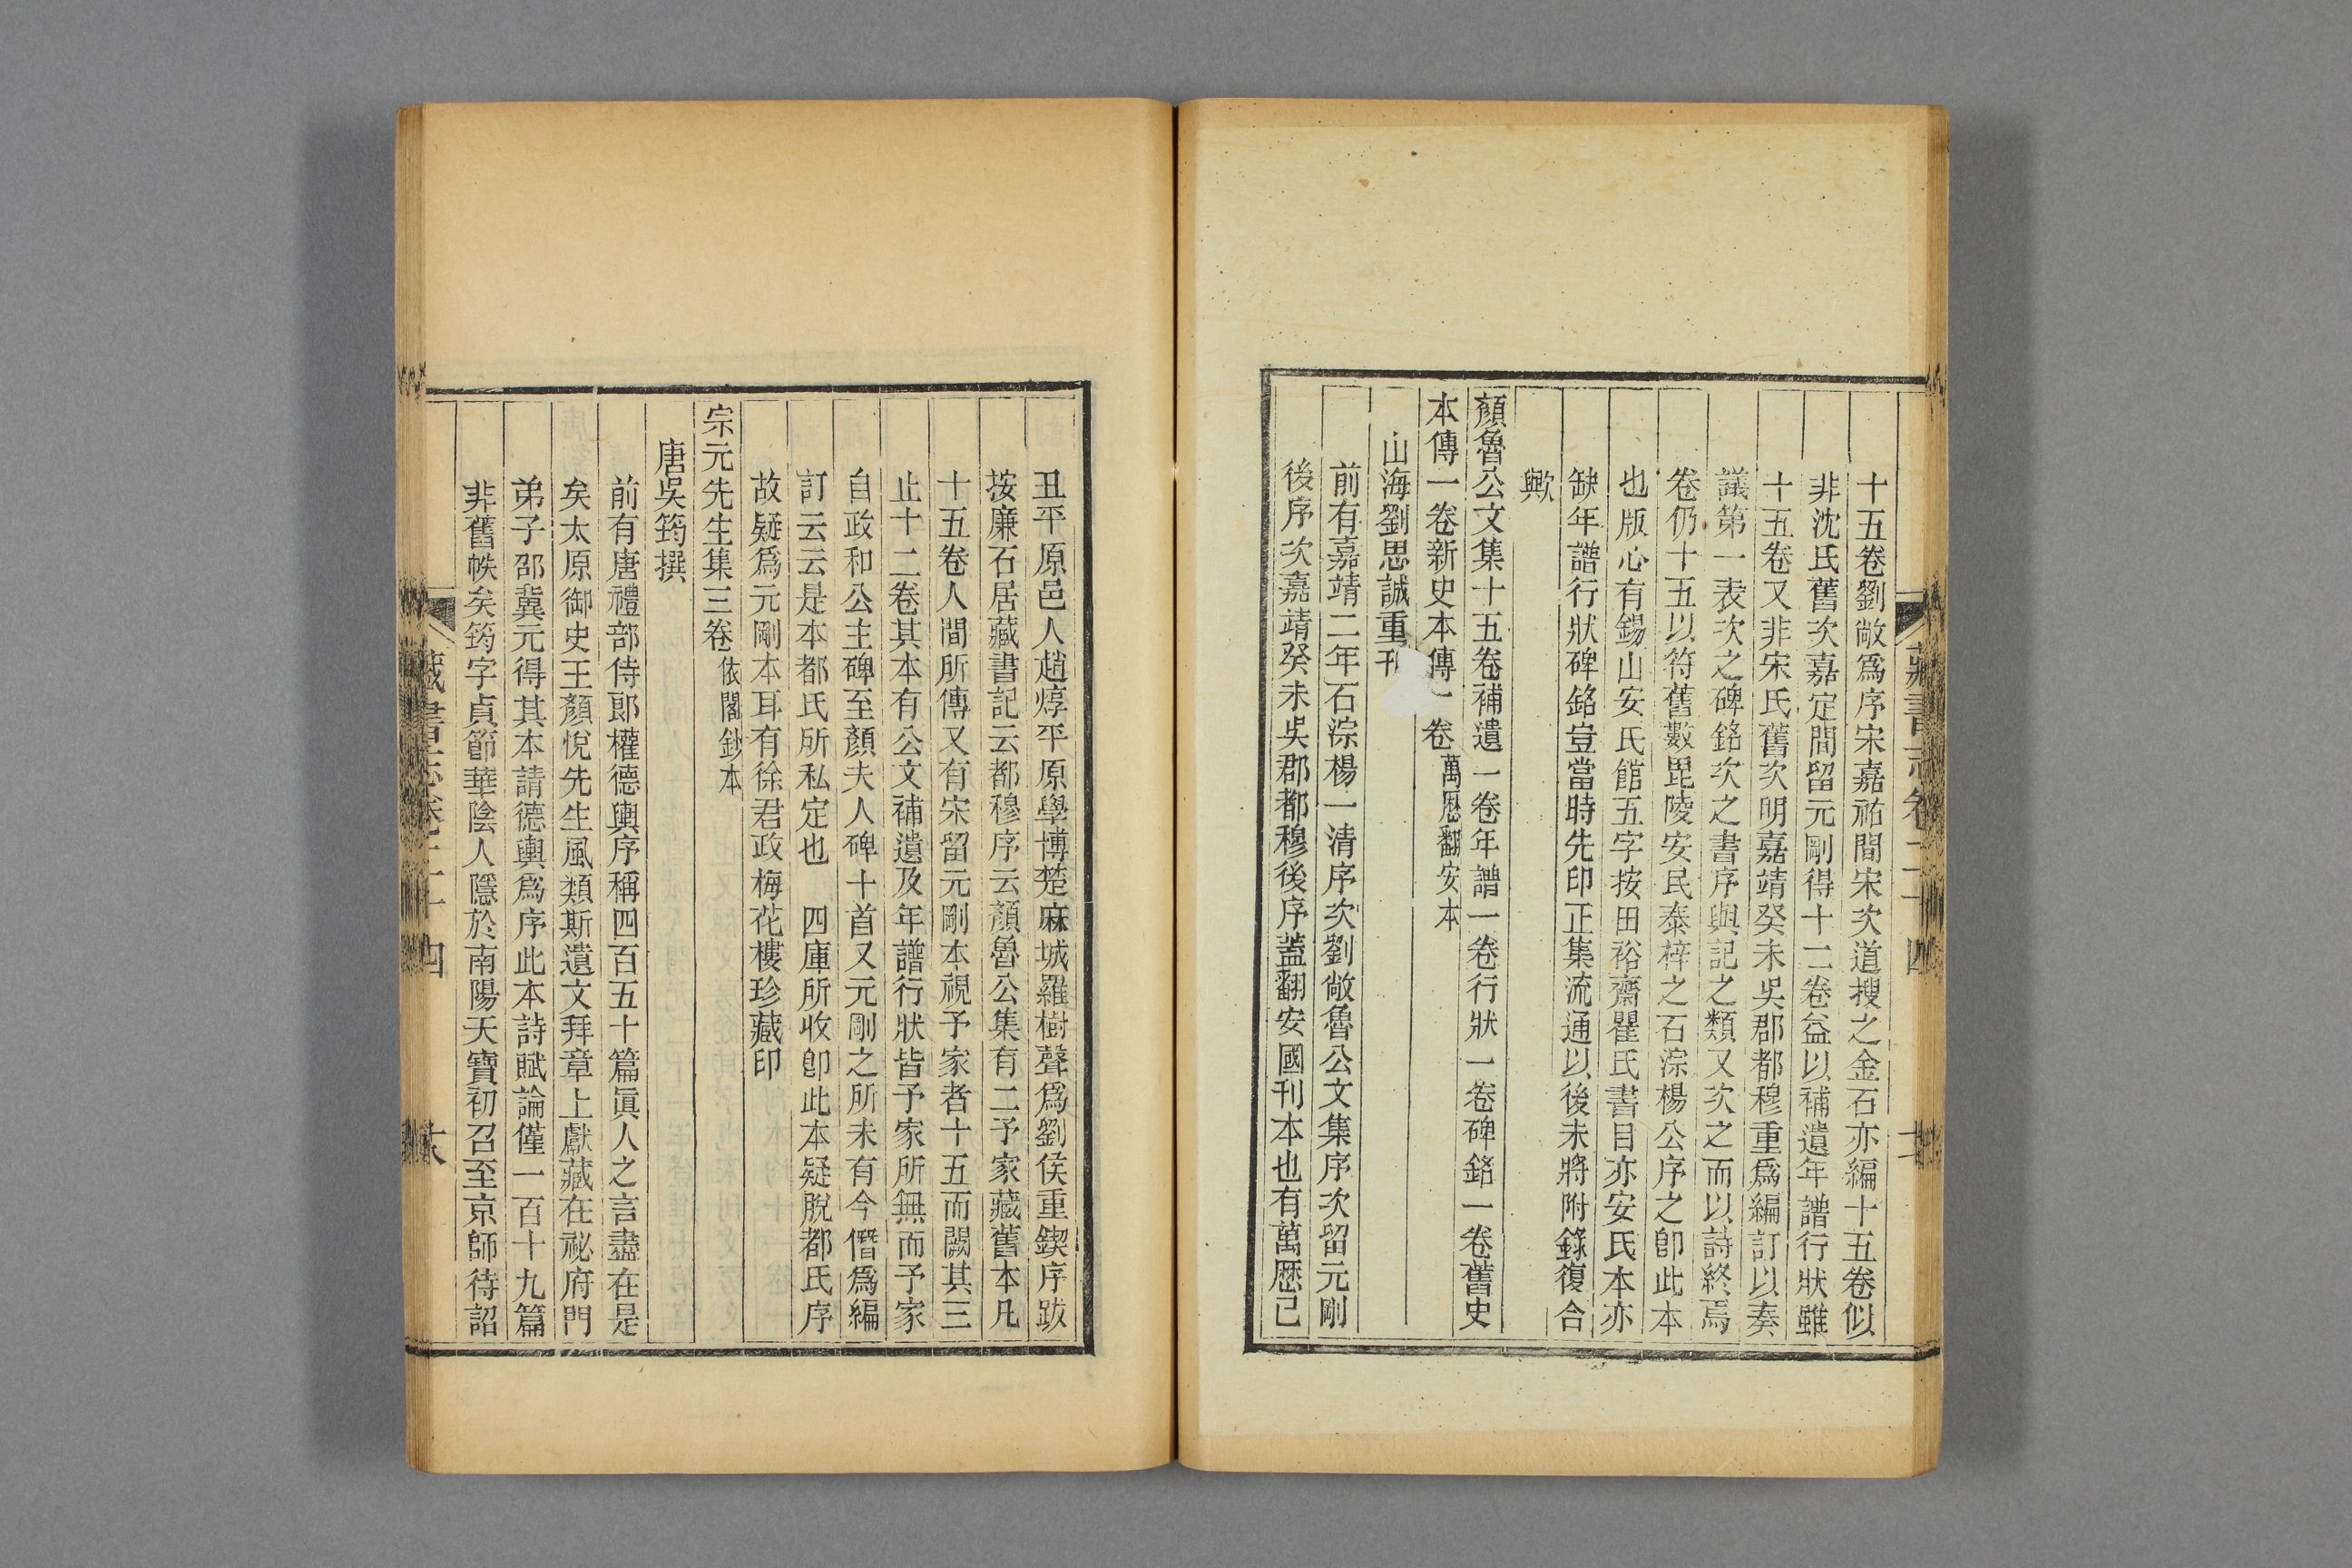 十五卷劉敞爲序宋嘉祐間宋次道搜之金石亦編十五卷似
非沈氏舊次嘉定間留元剛得十二卷益以補遺年譜行狀雖
十五卷又非宋氏舊次明嘉靖癸未吳郡都穆重爲編訂以奏
議第一表次之碑銘次之書序與記之類又次之而以詩終焉
卷仍十五以符舊數毘陵安民泰梓之石淙楊公序之卽此本
也版心有錫山安氏館五字按田裕齋瞿氏書目亦安氏本亦
缺年譜行狀碑銘豈當時先印正集流通以後未將附錄復合
歟
顏魯公文集十五卷補遺一卷年譜一卷行狀一卷碑銘一卷舊史
本傳一卷新史本傳一卷萬厯翻安本
山海劉思誠重刊
前有嘉靖二年石淙楊一清序次劉敞魯公文集序次留元剛
後序次嘉靖癸未吳郡都穆後序蓋翻安國刊本也有萬厯己
丑平原邑人趙焞平原學博楚麻城羅樹聲爲劉侯重鍥序跋
按廉石居藏書記云都穆序云顏魯公集有二予家藏舊本凡
十五卷人間所傳又有宋留元剛本視予家者十五而闕其三
止十二卷其本有公文補遺及年譜行狀皆予家所無而予家
自政和公主碑至顏夫人碑十首又元剛之所未有今僭爲編
訂云云是本都氏所私定也 四庫所收卽此本疑脫都氏序
故疑爲元剛本耳有徐君政梅花樓珍藏印
宗元先生集三卷依閣鈔本
唐吳筠撰
前有唐禮部侍郎權德輿序稱四百五十篇眞人之言盡在是
矣太原御史王顏悅先生風類斯遺文拜章上獻藏在祕府門
弟子邵冀元得其本請德輿爲序此本詩賦論僅一百十九篇
非舊帙矣筠字貞節華陰人隱於南陽天寶初召至京師待詔
藏書志卷二十四